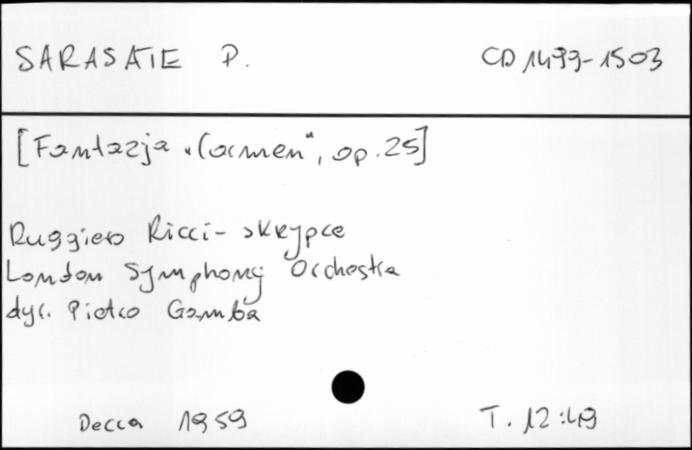 SARASATE P. CD 1499-1503
[Fantazja „Carmen", op. 25]
Ruggiero Ricci - skrzypce
London Symphony Orchestra
dyr. Pietro Gamba
Decca 1959 T. 12:49